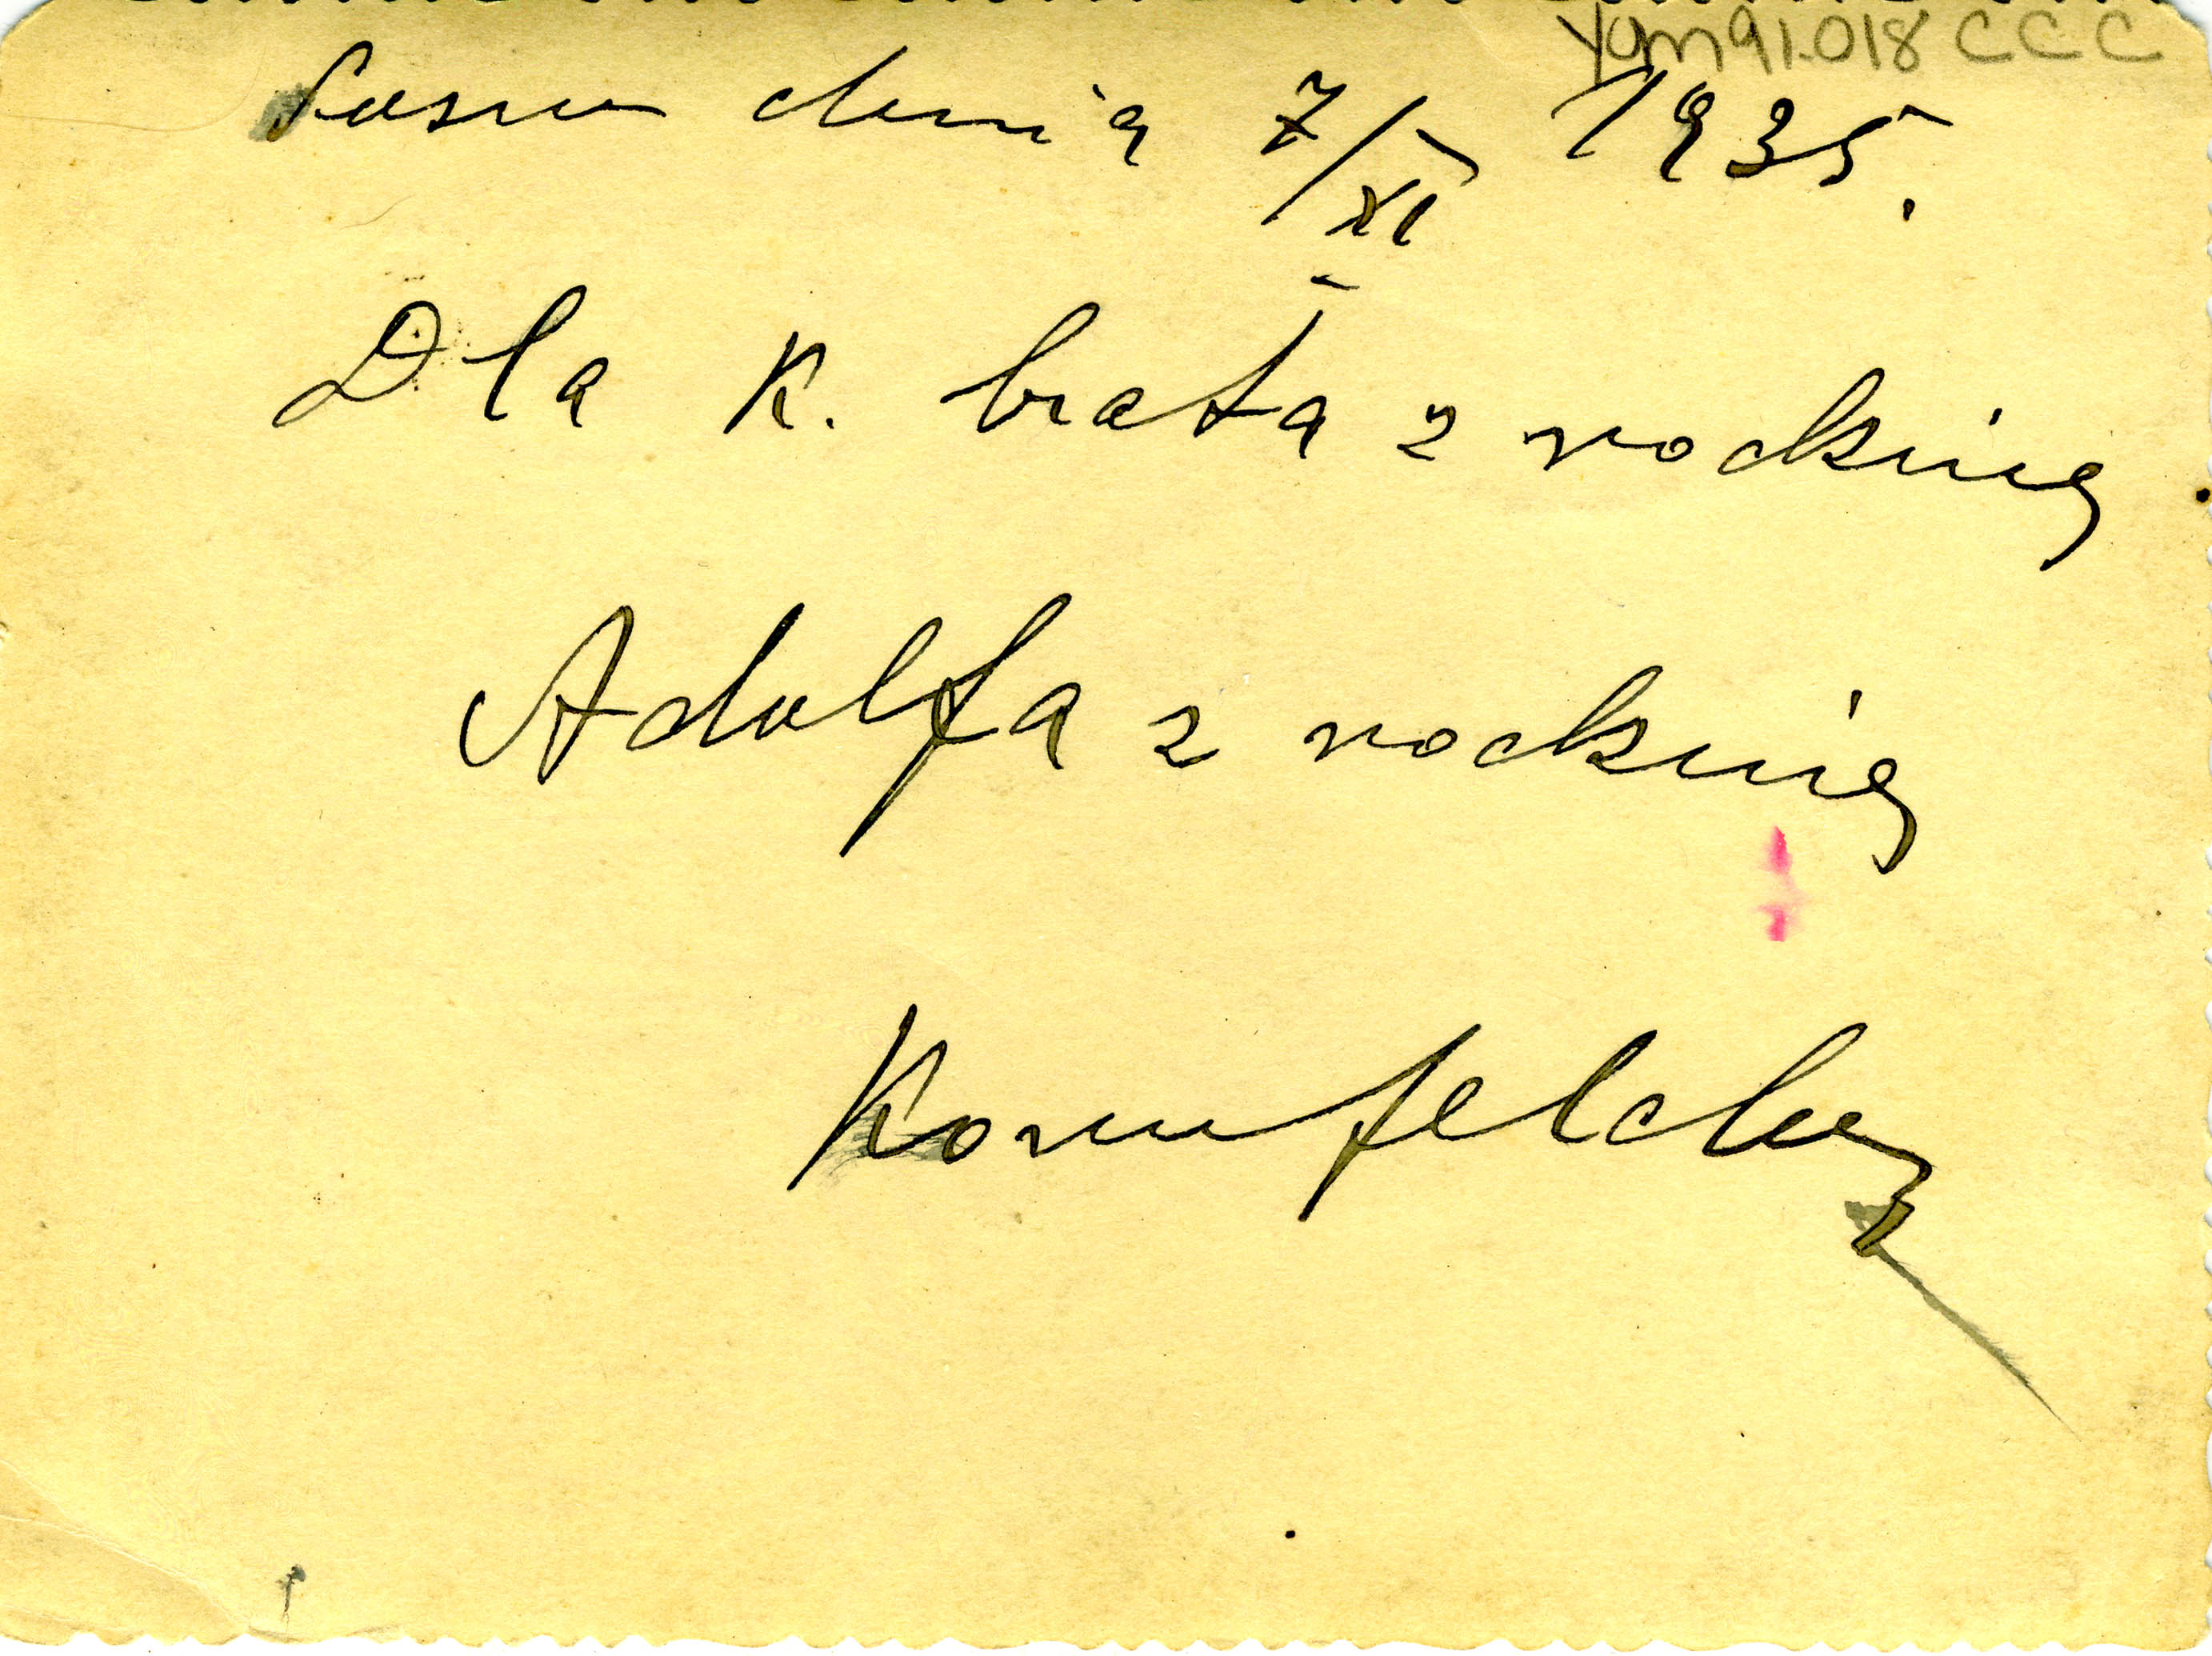 Yam91.018 CCC
dnia 7/XI 1935.
Dla K. brata z rodziną
Adolfa z rodziną
Kornfeldy